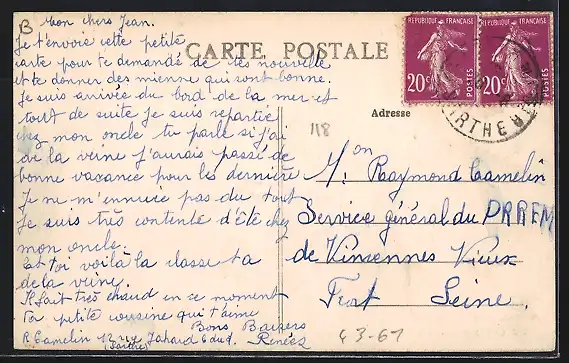 B Mon chers Jean.
Je t'envoie cette petite
carte pour te demandé de tes nouvelle
et te donner des mienne qui sont bonne.
Je suis arrivée du bord de la mer et
tout de suite je suis repartie
chez mon oncle tu parle si j'ai
de la veine j'aurais passé de
bonne vacance pour les dernière
Je ne m'ennuie pas du tout
Je suis très contente d'êtê chez
mon oncle.
Et toi voilà la classe ta
de la veine.
Il fait très chaud en ce moment
Ta petite cousine qui t'aime
Bons Baisers
Renée
R Camelin 12 rue
(Sarthe)
CARTE POSTALE
Adresse
118
REPUBLIQUE FRANÇAISE
20c POSTES
REPUBLIQUE FRANÇAISE
20c POSTES
SARTHE
Mon Raymond Camelin
Service général du DRREM
de Vinsennes Vieux
Fort Seine.
43-61